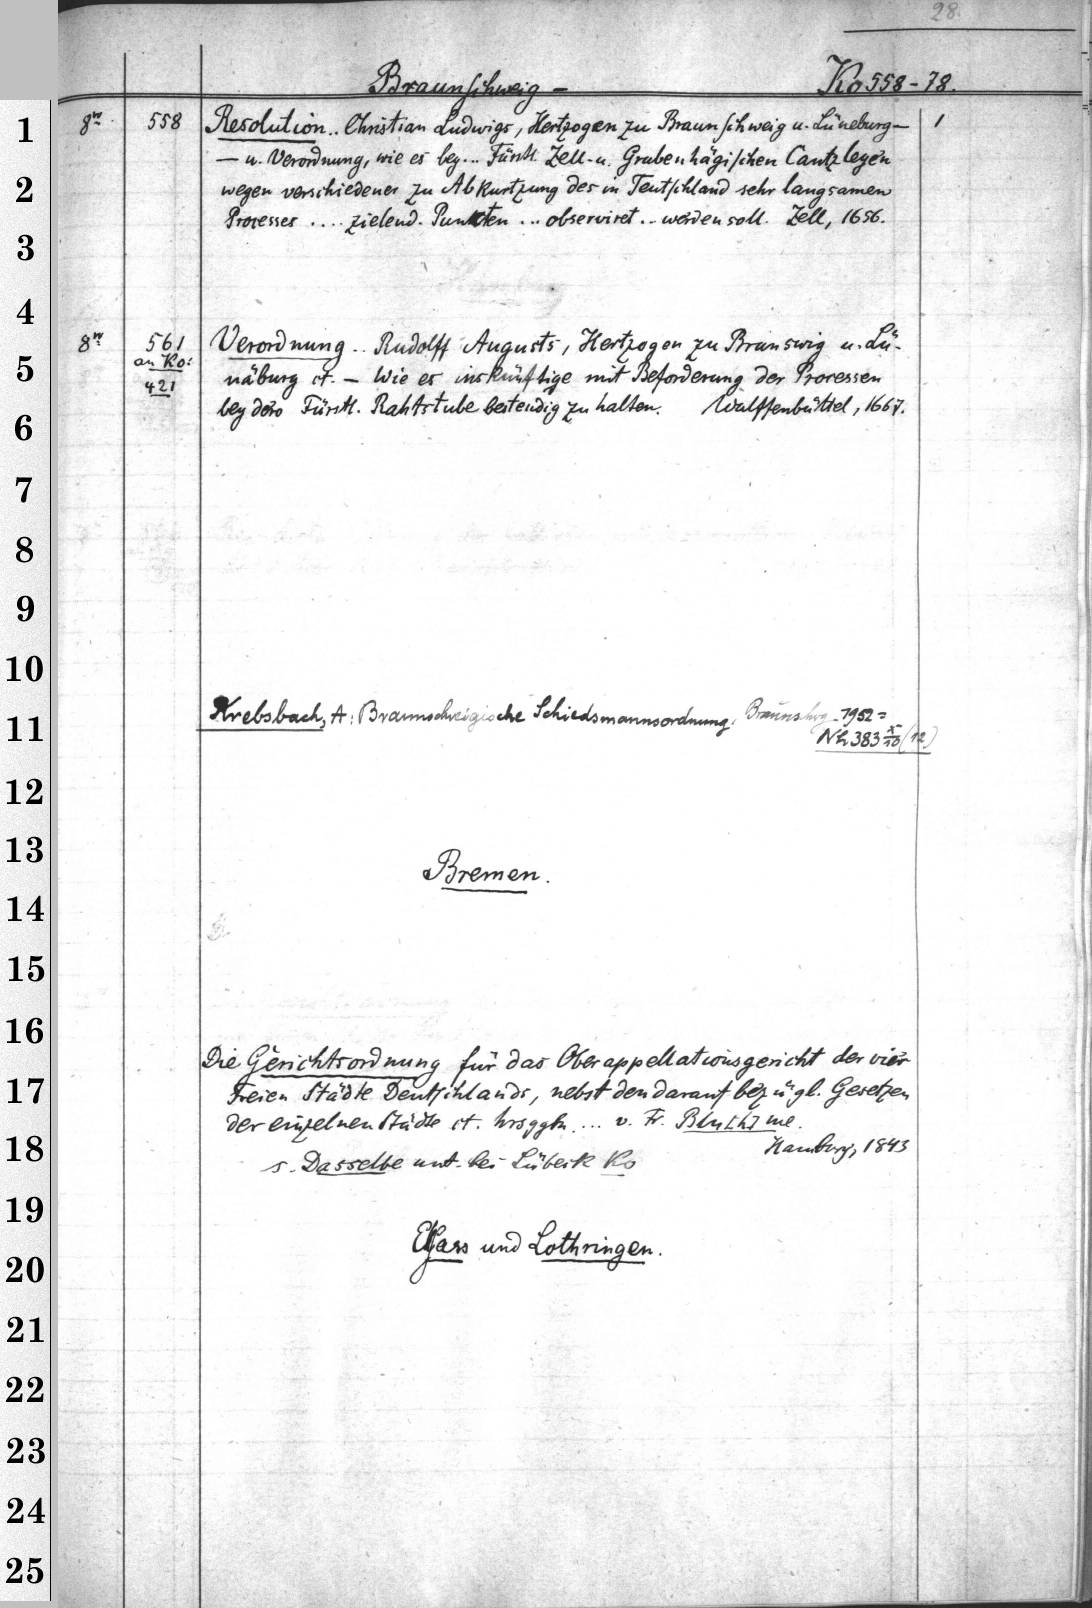 28.
Braunschweig – Ko 558-78.
1 8º 558 Resolution.. Christian Ludwigs, Hertzogen zu Braunschweig u. Lüneburg – 1
– u. Verordnung, wie es bey... Fürstl. Zell- u. Grubenhägischen Cantzleyen
2 wegen verschiedener zu Abkurtzung des in Teutschland sehr langsamen
Processes .... zielend. Punkten ... observiret .. werden soll. Zell, 1656.
3
4
8º 561 Verordnung .. Rudolff Augusts, Hertzogen zu Brunswig u. Lü-
5 an Ko: 421 näburg ct. – Wie es inskünftige mit Beforderung der Processen
6 bey dero Fürstl. Rahtstube bestendig zu halten. Wulffenbüttel, 1667.
7
8
9
10
11 Krebsbach, A: Braunschweigische Schiedsmannsordnung. 1952 =
Nh 383 x/10 (12)
12
13 Bremen.
14
15
16
Die Gerichtsordnung für das Oberappellationsgericht der vier
17 Freien Städte Deutschlands, nebst den darauf bezügl. Gesetzen
der einzelnen Städte ct. hrsggbn. ... v. Fr. Blu[h]me.
18 Hamburg, 1843
s. Dasselbe unt. bei Lübeck Ko
19
Elsass und Lothringen.
20
21
22
23
24
25